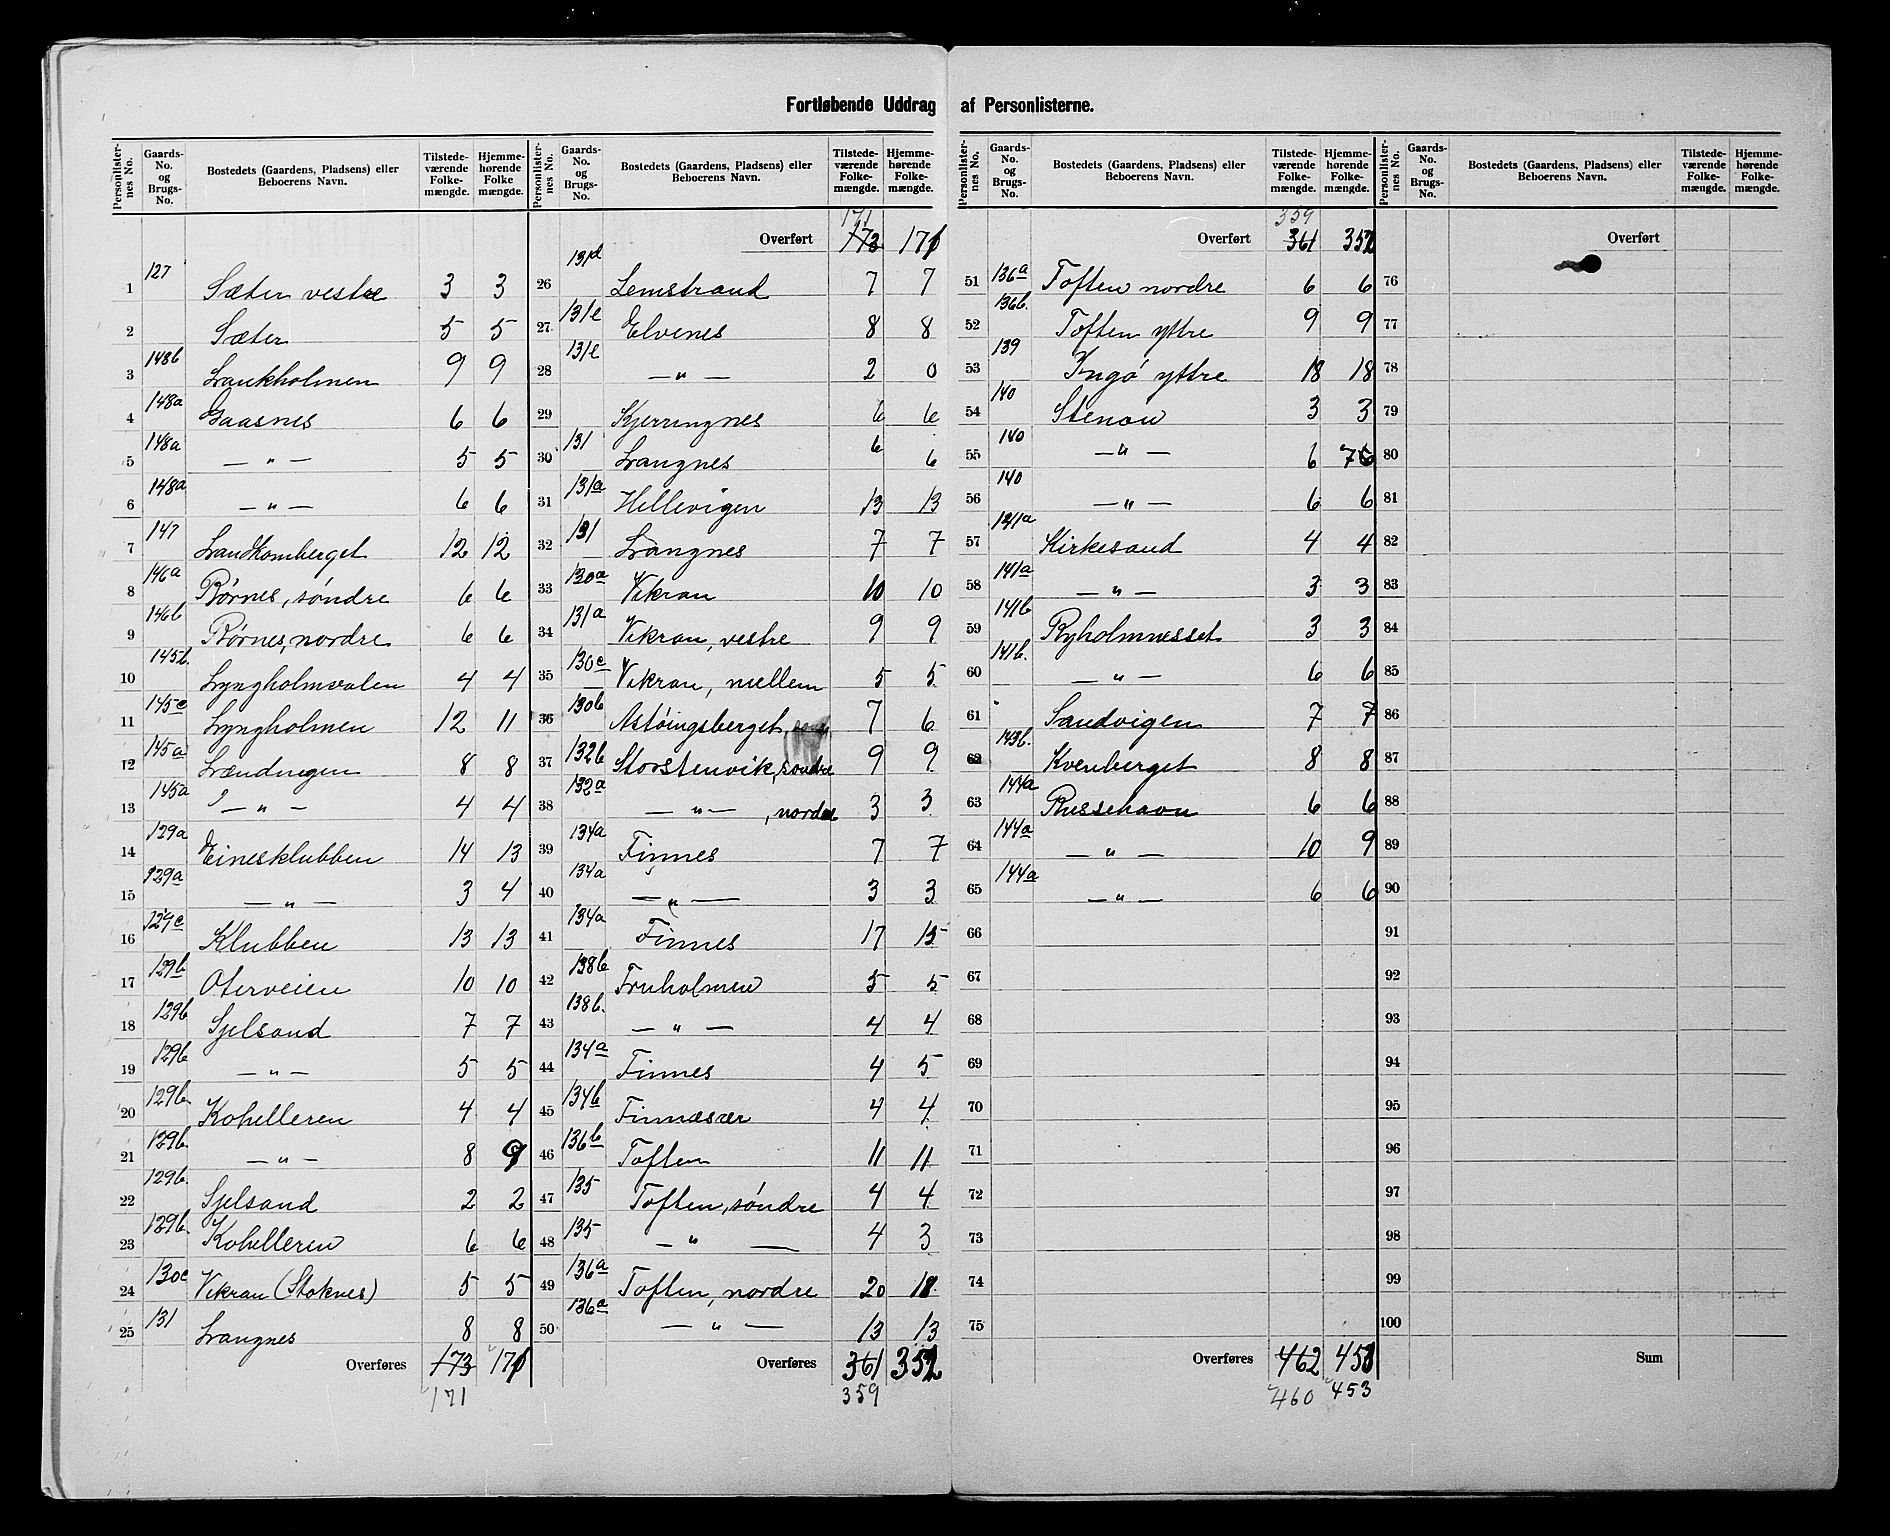 Fortløbende Uddrag af Personlisterne.
Personlister-nes No. | Gaards-No. og Brugs-No. | Bostedets (Gaardens, Pladsens) eller Beboerens Navn. | Tilstede-værende Folke-mængde. | Hjemme-hørende Folke mængde.
1 127 Sæter vestre 3 3
2 Sæter 5 5
3 148b Lankholmen 9 9
4 148a Gaasnes 6 6
5 148a — " — 5 5
6 148a — " — 6 6
7 147 12 12
8 146a Børnes, søndre 6 6
9 146b Børnes, nordre 6 6
10 145b. Lyngholmvalen 4 4
11 145c Lyngholmen 12 11
12 145a 8 8
13 145a — " — 4 4
14 129a Einesklubben 14 13
15 129a — " — 3 4
16 129c Klubben 13 13
17 129b Oterveien 10 10
18 129b Sjelsand 7 7
19 129b — " — 5 5
20 129b. Kohelleren 4 4
21 129b. — " — 8 9
22 129b. Sjelsand 2 2
23 129b. Kohelleren 6 6
24 130c Vikran (Stoknes) 5 5
25 131 Langnes 8 8
Overføres 173 171
171
Personlister-nes No. | Gaards-No. og Brugs-No. | Bostedets (Gaardens, Pladsens) eller Beboerens Navn. | Tilstede-værende Folke-mængde. | Hjemme-hørende Folke-mængde.
171
Overført 173 171
26 131d Lemstrand 7 7
27 131e Elvenes 8 8
28 131e — " — 2 0
29 Kjerringnes 6 6
30 131 Langnes 6 6
31 131a Hellevigen 13 13
32 131 Langnes 7 7
33 130a Vikran 10 10
34 131a Vikran, vestre 9 9
35 130c Vikran, mellem 5 5
36 130b Astøingsberget 7 6
37 132b Storstenvik, søndre 9 9
38 132a — " — , nordre 3 3
39 134a Finnes 7 7
40 134a — " — 3 3
41 134a Finnes 17 15
42 138b Fruholmen 5 5
43 138b. — " — 4 4
44 134a Finnes 4 5
45 134b Finnesvær 4 4
46 136b Toften 11 11
47 135 Toften, søndre 4 4
48 135 — " — 4 3
49 136a Toften, nordre 20 18
50 136a — " — 13 13
Overføres 361 352
359
Personlister-nes No. | Gaards-No. og Brugs-No. | Bostedets (Gaardens, Pladsens) eller Beboerens Navn. | Tilstede-værende Folke-mængde. | Hjemme-hørende Folke-mængde.
359
Overført 361 352
51 136a Toften nordre 6 6
52 136b. Toften yttre 9 9
53 139 Ingø yttre 18 18
54 140 Stenou 3 3
55 140 — " — 6 76
56 140 — " — 6 6
57 141a Kirkesand 4 4
58 141a — " — 3 3
59 141b Ryholmnesset 3 3
60 141b. — " — 6 6
61 Sandvigen 7 7
62 143b. Kvenberget 8 8
63 144a Russehavn 6 6
64 144a — " — 10 9
65 144a — " — 6 6
66
67
68
69
70
71
72
73
74
75
Overføres 462 453
460 453
Personlister-nes No. | Gaards-No. og Brugs-No. | Bostedets (Gaardens, Pladsens) eller Beboerens Navn. | Tilstede-værende Folke-mængde. | Hjemme-hørende Folke-mængde.
Overført
76
77
78
79
80
81
82
83
84
85
86
87
88
89
90
91
92
93
94
95
96
97
98
99
100
Sum